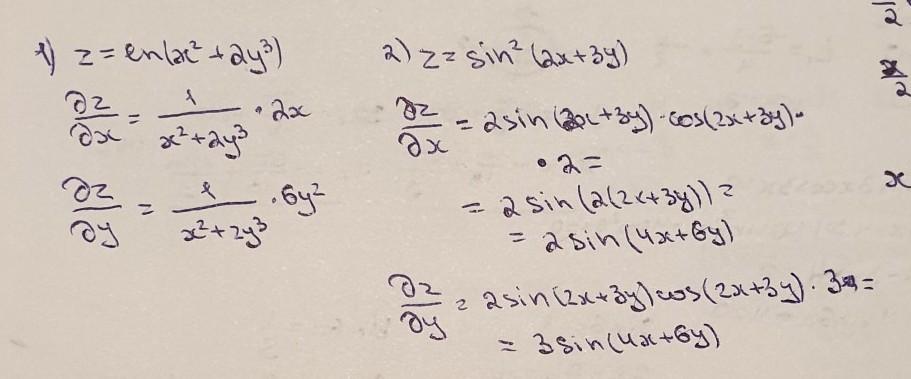 1) z = ln(x² + 2y³)
∂z/∂x = 1/(x²+2y³) · 2x
∂z/∂y = 1/(x²+2y³) · 6y²
2) z = sin² (2x+3y)
∂z/∂x = 2sin(2x+3y) · cos(2x+3y) ·
· 2 =
= 2 sin(2(2x+3y)) =
= 2 sin(4x+6y)
∂z/∂y = 2sin(2x+3y)cos(2x+3y) · 3 =
= 3 sin(4x+6y)
2
2
x